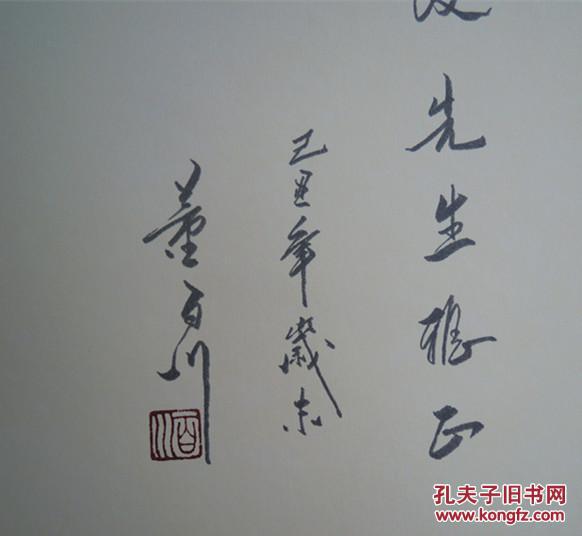 先生雅正
己丑年歲末
董百川
百川
孔夫子旧书网
www.kongfz.com